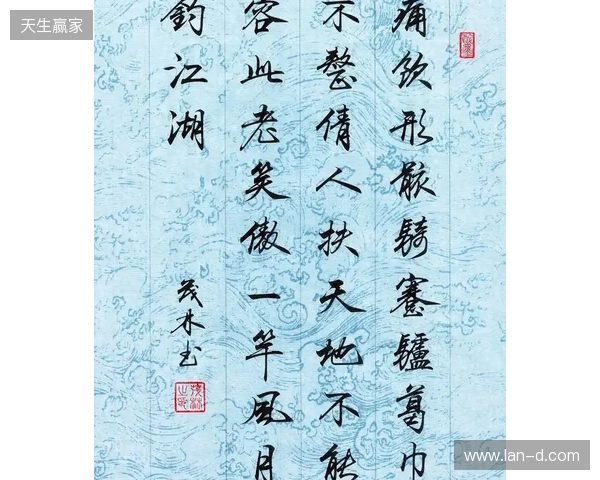 天生赢家
痛飲形骸騎蹇驢葛巾
不整倩人扶天地不能
容此老笑傲一竿風月
釣江湖
茂林书
www.lan-d.com